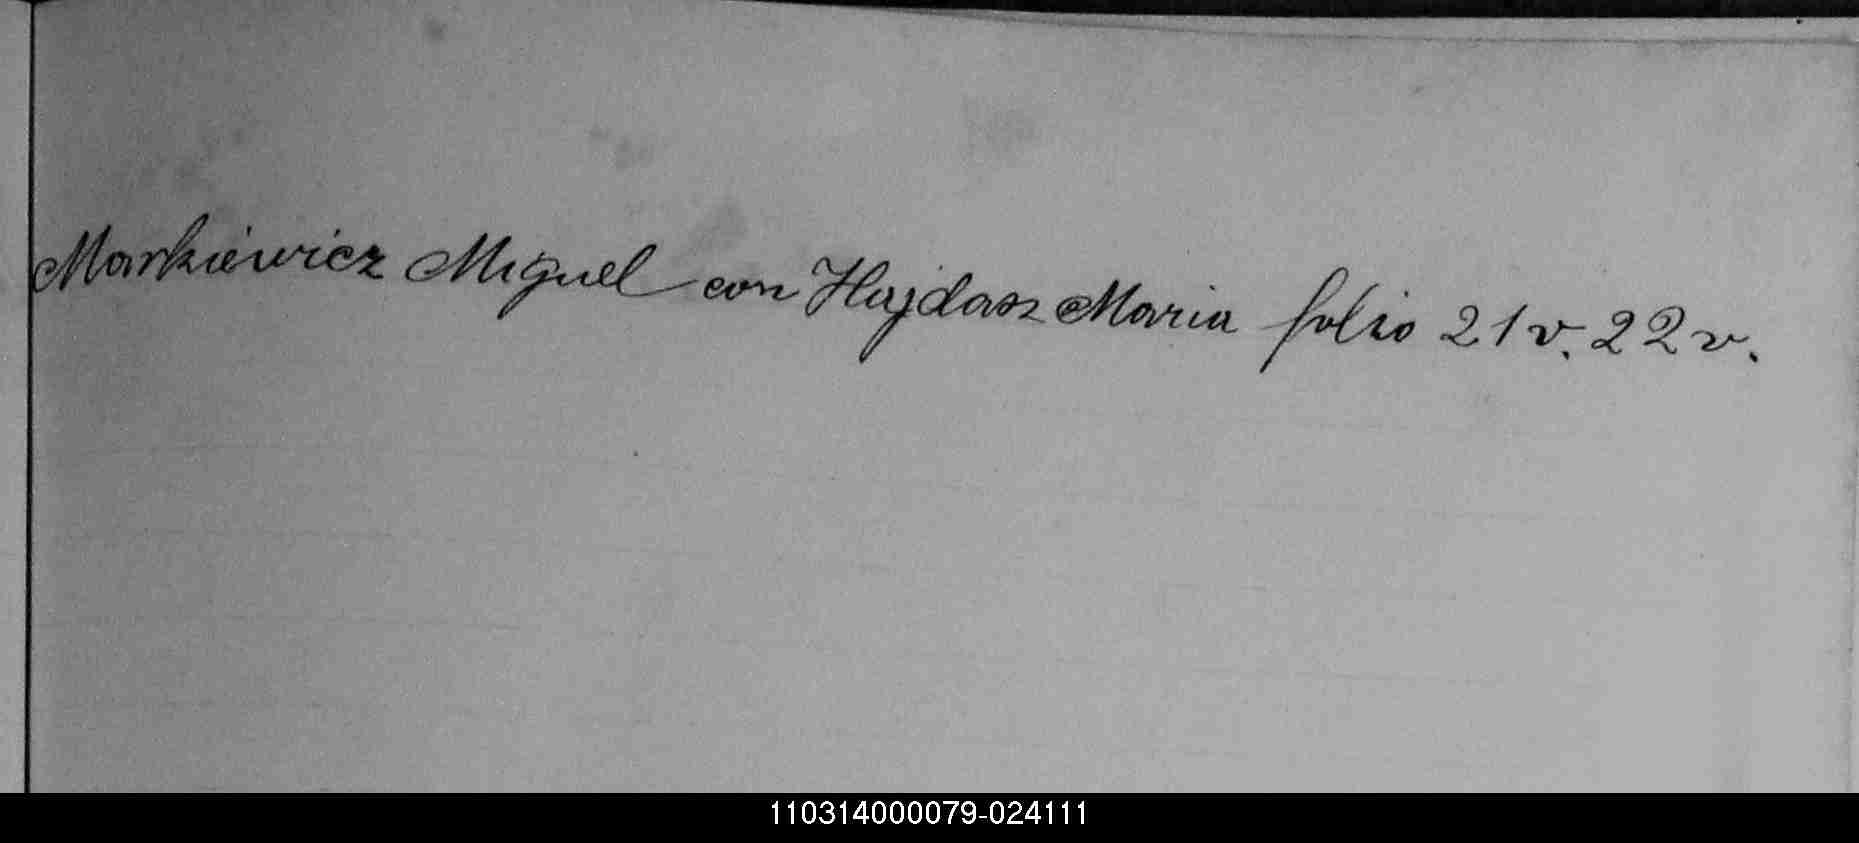 Markiewicz Miguel con Hajdasz Maria folio 21v. 22v.
110314000079-024111